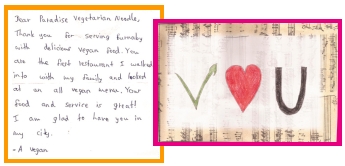 Dear Paradise Vegetarian Noodle,
Thank you for serving Burnaby
with delicious vegan food. You
are the first restaurant I walked
into with my family and looked
at an all vegan menu. Your
food and service is great!
I am glad to have you in
my city.
- A vegan
V U